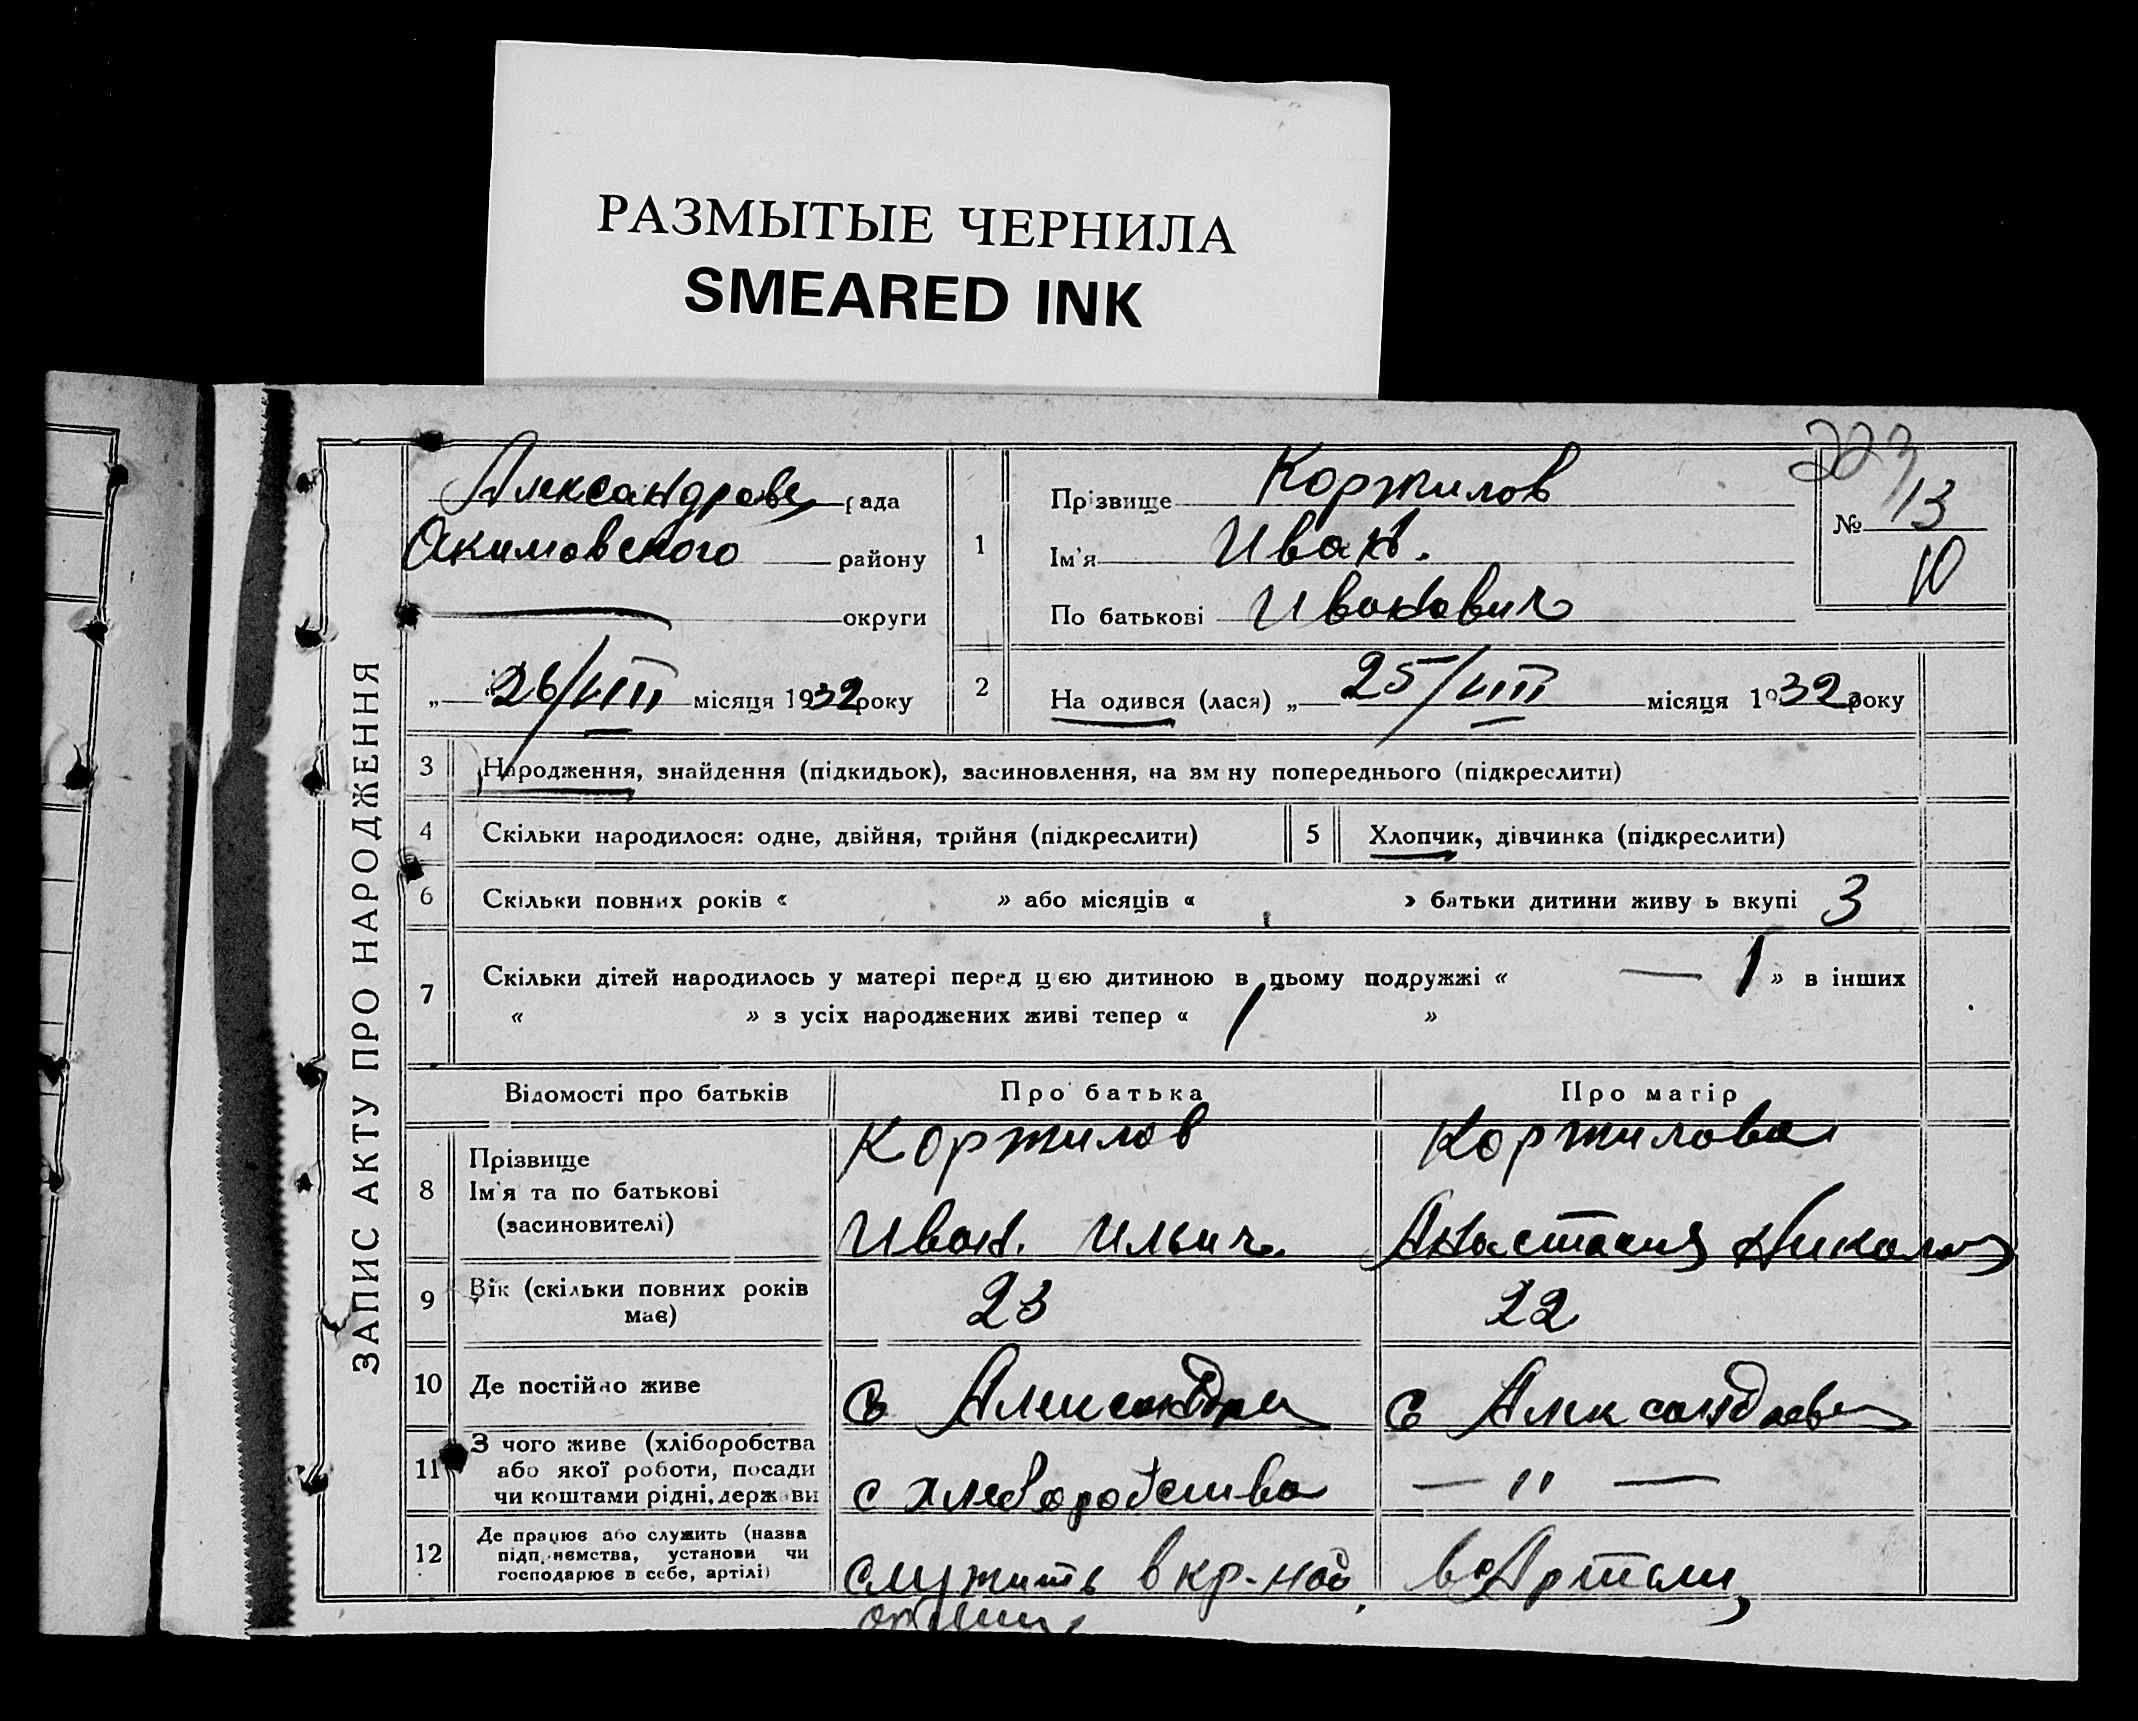 РАЗМЫТЫЕ ЧЕРНИЛА
SMEARED INK
ЗАПИС АКТУ ПРО НАРОДЖЕННЯ
Александровс рада
Акимовского району
округи
„ 26/VIII місяця 1932 року
223
№ 13
10
1
Прізвище Коржилов
Ім'я Иван.
По батькові Иванович
2 На одився (лася) „ 25/VIII місяця 1932 року
3 Народження, знайдення (підкидьок), засиновлення, на зм ну попереднього (підкреслити)
4 Скільки народилося: одне, двійня, трійня (підкреслити) 5 Хлопчик, дівчинка (підкреслити)
6 Скільки повних років « » або місяців « » батьки дитини живу ь вкупі 3
7 Скільки дітей народилось у матері перед цією дитиною в цьому подружжі « — 1 » в інших
« » з усіх народжених живі тепер « 1 »
Відомості про батьків Про батька Про матір
8 Прізвище Коржилов Коржилова
Ім'я та по батькові
(засиновителі) Иван. Ильич. Анастасия Никола
9 Вік (скільки повних років має) 23 22
10 Де постійно живе с Александра с Александрев
11 З чого живе (хліборобства
або якої роботи, посади
чи коштами рідні, держави с хлеборобства — " —
12 Де працює або служить (назва
підприємства, установи чи
господарює в себе, артілі) служить в кр-ной в Артели